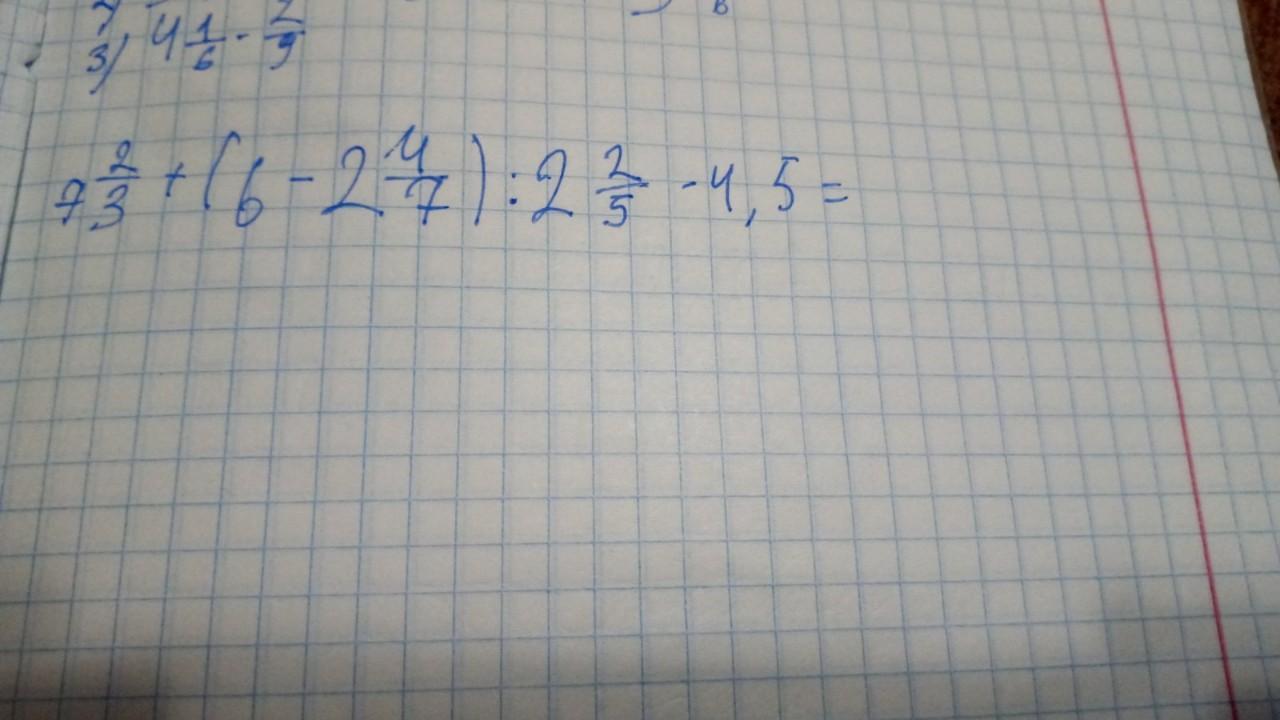 3) 4 1/6 - 2/9
7 2/3 + (6 - 2 4/7) : 2 2/5 - 4,5 =